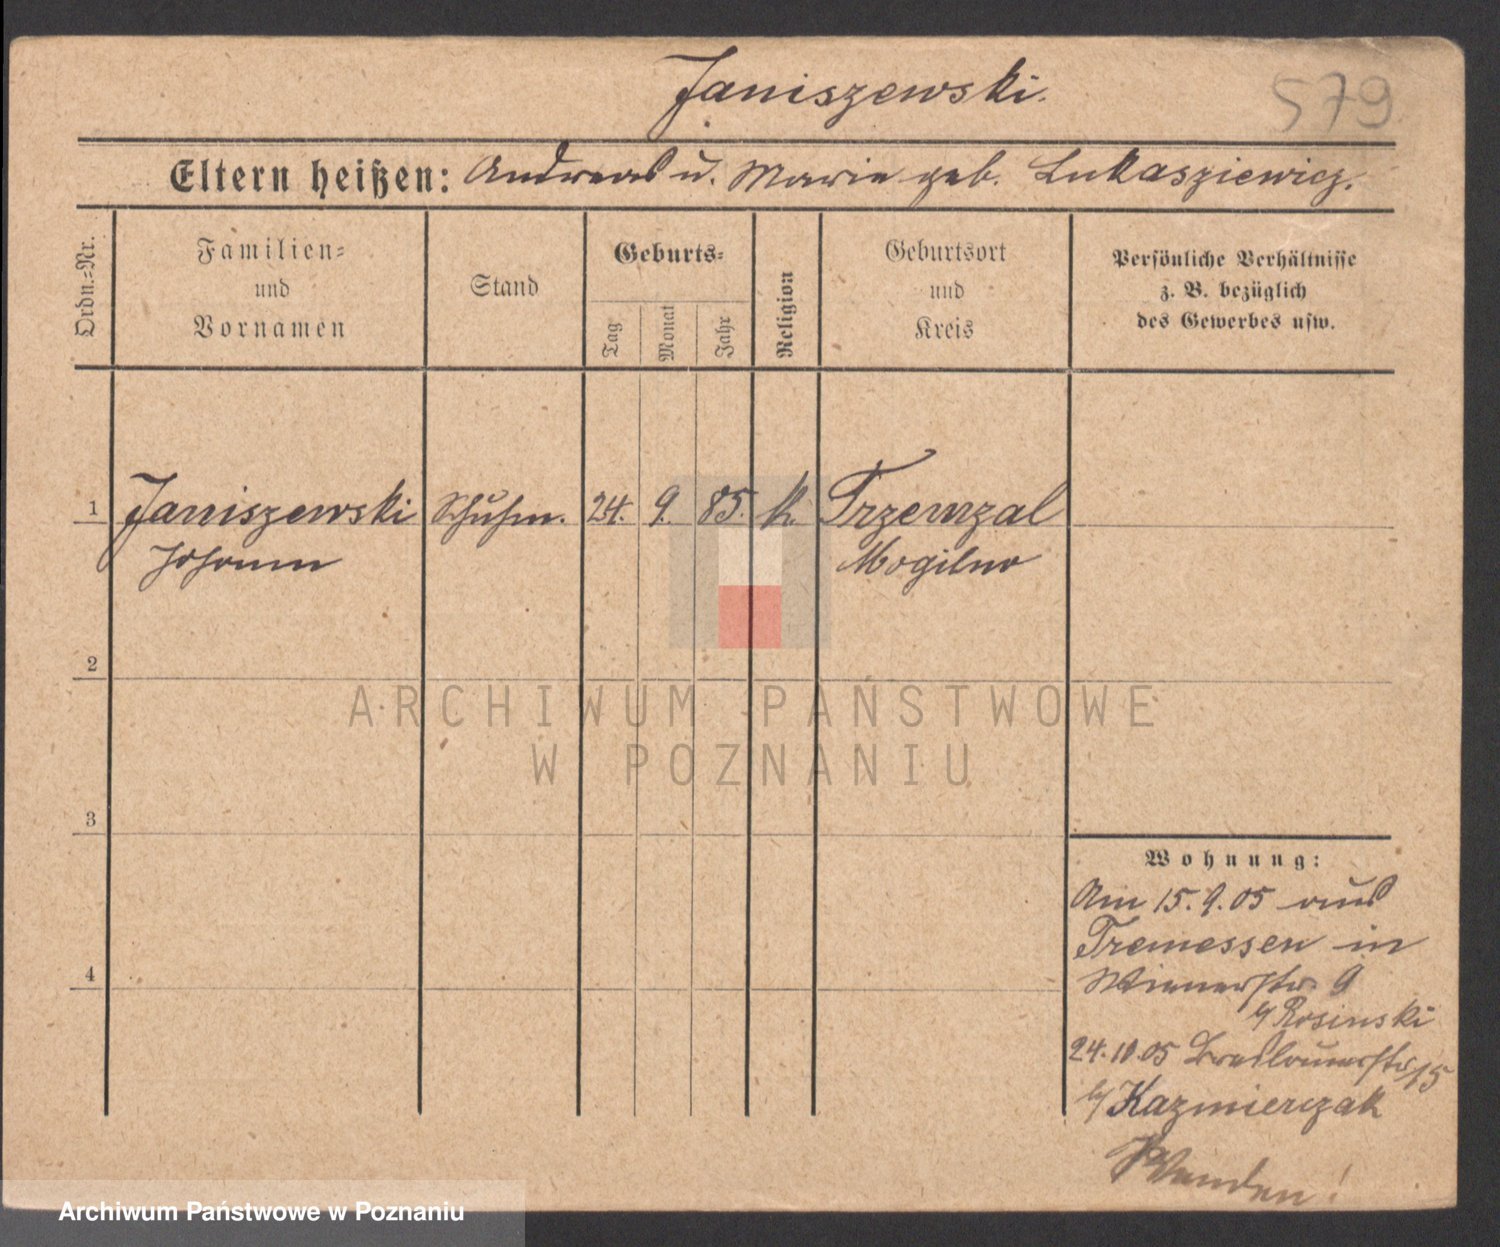 Janiszewski.
579
Eltern heißen: Andreas u. Marie geb. Lukasziewicz.
Ordn.-Nr.
Familien- und Vornamen
Stand
Geburts-
Tag
Monat
Jahr
Religion
Geburtsort und Kreis
Persönliche Verhältnisse
z. B. bezüglich
des Gewerbes usw.
1 Janiszewski Schuhm. 24. 9. 85. k. Trzemzal
Johann Mogilno
2
3
4
Wohnung:
Am 15.9.05 aus
Tremessen in
Wienerstr. 9
b/ Rosinski
24.10.05 Breslauerstr 15
b/ Kazmierczak
Wenden!
ARCHIWUM PAŃSTWOWE
W POZNANIU
Archiwum Państwowe w Poznaniu